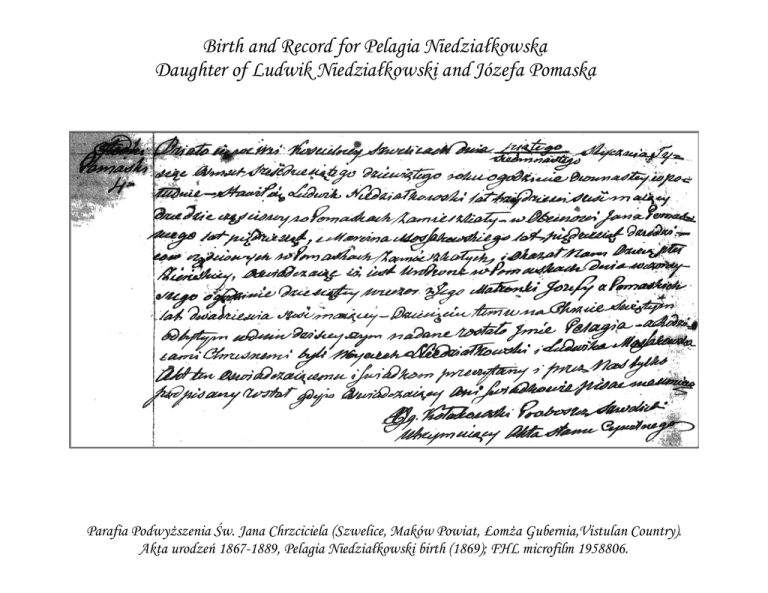 Birth and Record for Pelagia Niedziałkowska
Daughter of Ludwik Niedziałkowski and Józefa Pomaska
Pomaski
4
Działo się we wsi Szwelicach dnia piątego Stycznia Ty-
siedmnastego
siąc Ośmset Sześćdziesiątego dziewiątego roku o godzinie dwunastej w po-
łudnie – Stawił się Ludwik Niedziałkowski lat trzydzieści sześć mający
Dziedzic cząstkowy w Pomaskach zamieszkały – w Obecności Jana
lat pięćdziesiąt, i Marcina lat pięćdziesiąt
w Pomaskach zamieszkałych, i okazał Nam Dziecię płci
Żeńskiej, oświadczając iż jest Urodzone w Pomaskach dnia wczoraj-
szego o godzinie dziesiątej wieczór z Jego Małżonki Józefy z Pomaskich
lat dwadzieścia sześć mającej – Dziecięciu temu na Chrzcie Świętym
odbytym w dniu dzisiejszym nadane zostało Imie Pelagia –
Chrzestnemi byli Niedziałkowski i Ludwika
Akt ten oświadczającemu i świadkom przeczytany i przez Nas tylko
podpisany został gdyż oświadczający i świadkowie pisać
Proboszcz
Utrzymujący Akta Stanu Cywilnego
Parafia Podwyższenia Św. Jana Chrzciciela (Szwelice, Maków Powiat, Łomża Gubernia,Vistulan Country).
Akta urodzeń 1867-1889, Pelagia Niedziałkowski birth (1869); FHL microfilm 1958806.